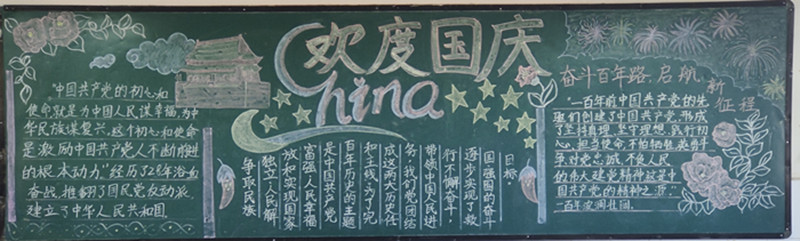 欢度国庆
China
"中国共产党的初心和
使命,就是为中国人民谋幸福,为中
华民族谋复兴。这个初心和使命
是激励中国共产党人不断前进
的根本动力。"经历了28年浴血
奋战,推翻了国民党反动派,
建立了中华人民共和国。
目标。
国强国的奋斗
逐步实现了救
行不懈奋斗,
带领中国人民进
务,我们党团结
成这两大历史任
和主线,为了完
百年历史的主题
是中国共产党
富强、人民幸福
放和实现国家
独立、人民解
争取民族
奋斗百年路,启航
新
征程
"一百年前,中国共产党的先
驱们创建了中国共产党,形成
了坚持真理、坚守理想,践行初
心、担当使命,不怕牺牲、英勇斗
争,对党忠诚、不负人民
的伟大建党精神,这是中
国共产党的精神之源。"